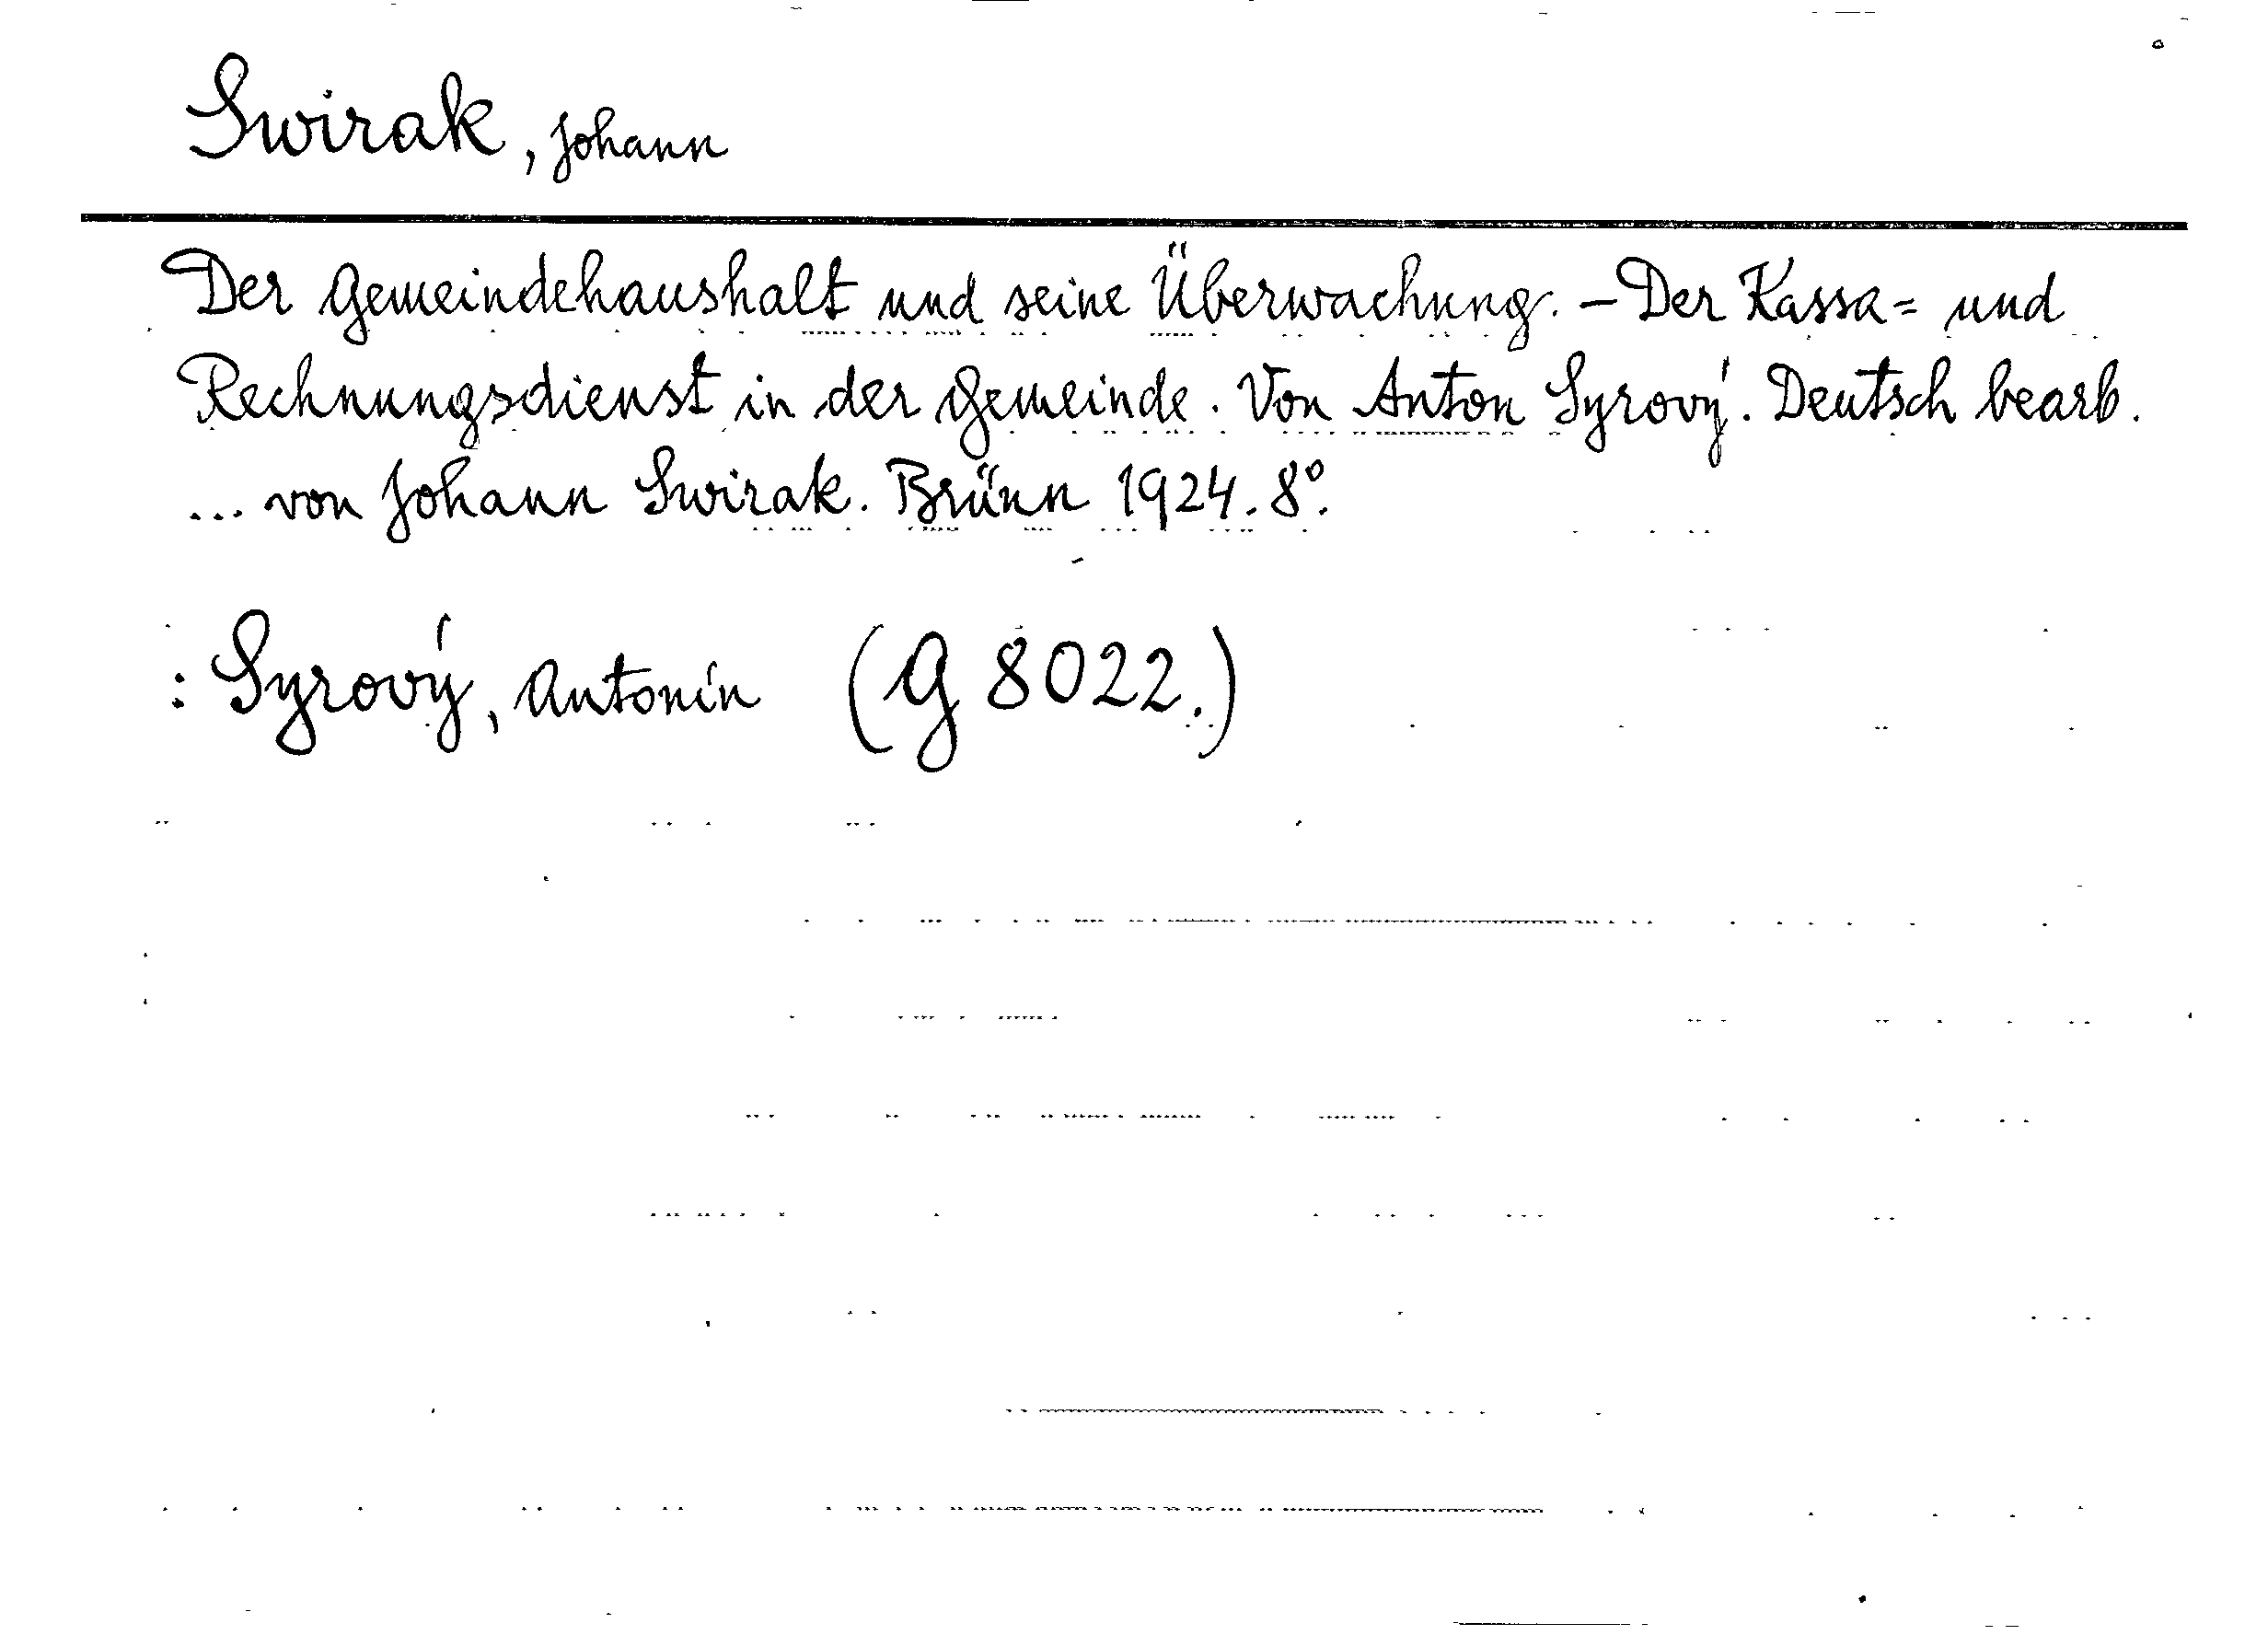 Swirak, Johann
Der Gemeindehaushalt und seine Überwachung. – Der Kassa= und
Rechnungsdienst in der Gemeinde. Von Anton Syrový. Deutsch bearb.
... von Johann Swirak. Brünn 1924. 8°.
: Syrový, Antonín (G 8022.)